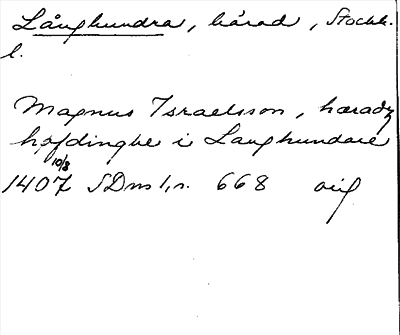 Långhundra, härad, Stockh.
l.
Magnus Israelsson, hæradz
høfdinghe i Langhundare
10/8
1407 SDns 1, s. 668 orig